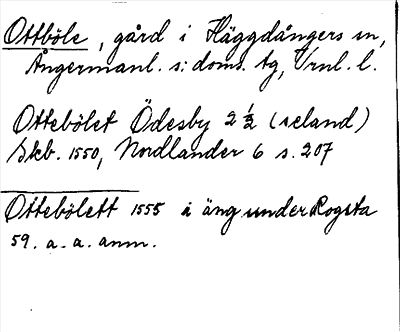 Ottböle, gård i Häggdångers sn,
Ångermanl. s:doms. tg, Vrnl. l.
Ottebölet Ödesby 2 ½ (seland)
Skb. 1550, Nordlander 6 s. 207
Ottebölett 1555 i äng under Rogsta
59. a. a. anm.